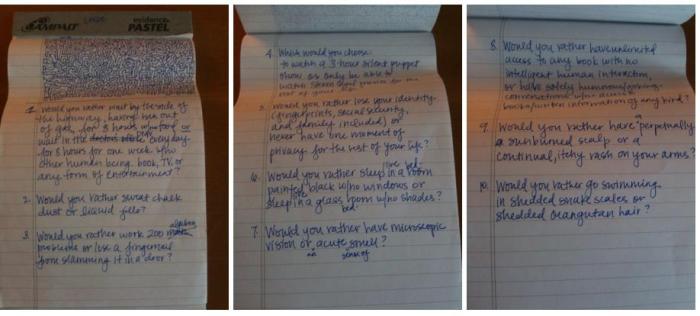 AMPAD
evidence
PASTEL
1. Would you rather wait by the side of
the highway, having run out
of gas, for 8 hours w/no food or
wait in the doctors office everyday
for 8 hours for one week w/no
other human being, book, TV, or
any form of entertainment?
2. Would you rather sweat chalk
dust or liquid jello?
3. Would you rather work 200 math
algebra
problems or lose a fingernail
from slamming it in a door?
4. What would you choose:
to watch a 3 hour silent puppet
show or only be able to
watch
5. Would you rather lose your identity
(fingerprints, social security,
and family included) or
never have one moment of
privacy for the rest of your life?
6. Would you rather sleep in a room
painted black w/no windows or
sleep in a glass room w/no shades?
7. Would you rather have microscopic
vision or acute smell?
an sense of
8. Would you rather have unlimited
access to any book with no
intelligent human interaction,
or have solely humorous/joking
conversations w/no access to
books/written information of any kind?
9. Would you rather have perpetually
a
a sunburned scalp or a
continual, itchy rash on your arms?
10. Would you rather go swimming
in shedded snake scales or
shedded orangutan hair?